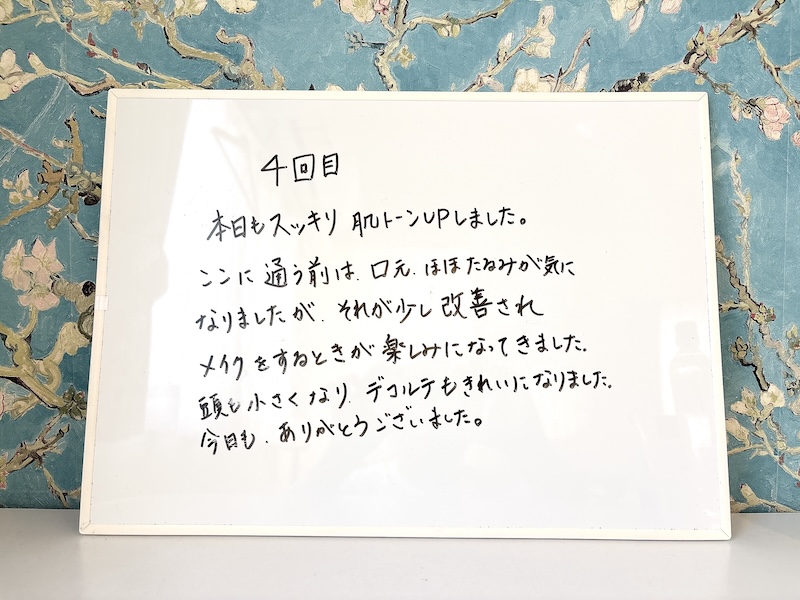 4回目
本日もスッキリ 肌トーンUPしました。
ここに通う前は、口元、ほほたるみが気に
なりましたが、それが少し改善され
メイクをするときが楽しみになってきました。
頭も小さくなり、デコルテもきれいになりました。
今日も、ありがとうございました。